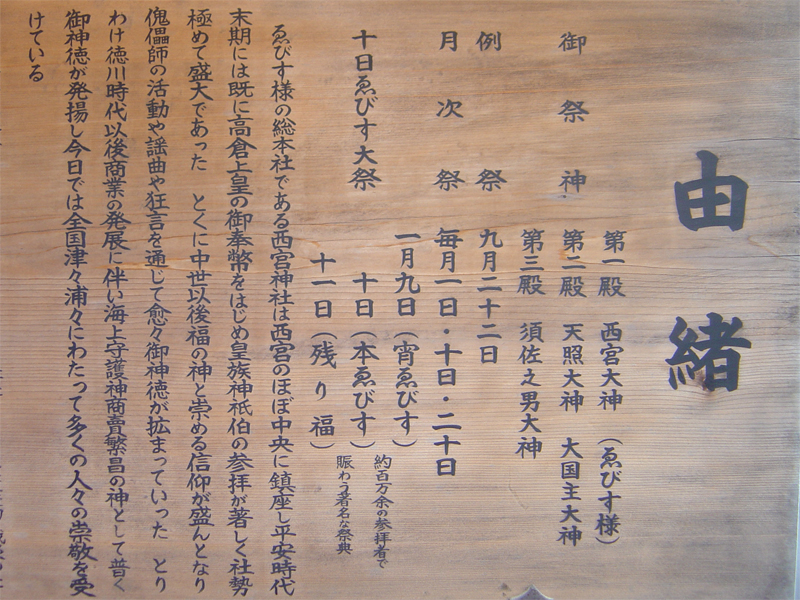 由緒
御祭神 第一殿 西宮大神 (ゑびす様)
第二殿 天照大神 大国主大神
第三殿 須佐之男大神
例祭 九月二十二日
月次祭 毎月一日・十日・二十日
十日ゑびす大祭 一月九日(宵ゑびす)
十日(本ゑびす)
十一日(残り福)
約百万余の参拝者で
賑わう著名な祭典
ゑびす様の総本社である西宮神社は西宮のほぼ中央に鎮座し平安時代
末期には既に高倉上皇の御奉幣をはじめ皇族神祇伯の参拝が著しく社勢
極めて盛大であった とくに中世以後福の神と崇める信仰が盛んとなり
傀儡師の活動や謡曲や狂言を通じて愈々御神徳が拡まっていった とり
わけ徳川時代以後商業の発展に伴い海上守護神商賣繁昌の神として普く
御神徳が発揚し今日では全国津々浦々にわたって多くの人々の崇敬を受
けている